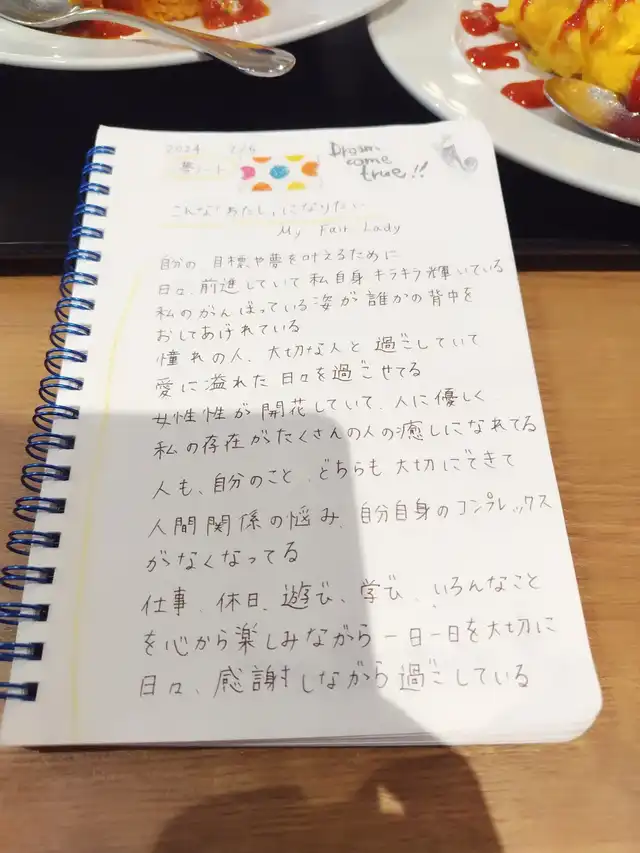 2024 2/6
夢ノート
Dream come true!!
こんな「わたし」になりたい
My Fair Lady
自分の 目標や夢を叶えるために
日々、前進していて 私自身 キラキラ輝いている
私のがんばっている姿が 誰かの背中を
おしてあげれている
憧れの人、大切な人と 過ごしていて
愛に溢れた 日々を過ごせてる
女性性が 開花していて、人に優しく
私の存在がたくさんの人の癒しになれてる
人も、自分のこと、どちらも 大切にできて
人間関係の悩み、自分自身のコンプレックス
がなくなってる
仕事、休日、遊び、学び、いろんなこと
を心から楽しみながら 一日一日を大切に
日々、感謝しながら過ごしている